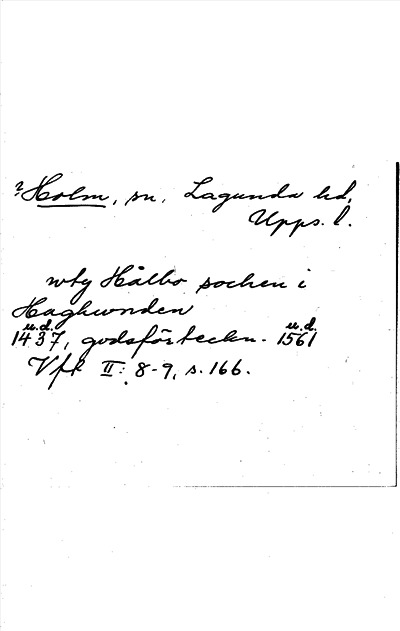 ? Holm, sn, Lagunda hd,
Upps. l.
wtg Hålbo sochen i
Haghwnden
u.d. u.d.
1437, godsförteckn. 1561
Vfk II: 8-9, s. 166.